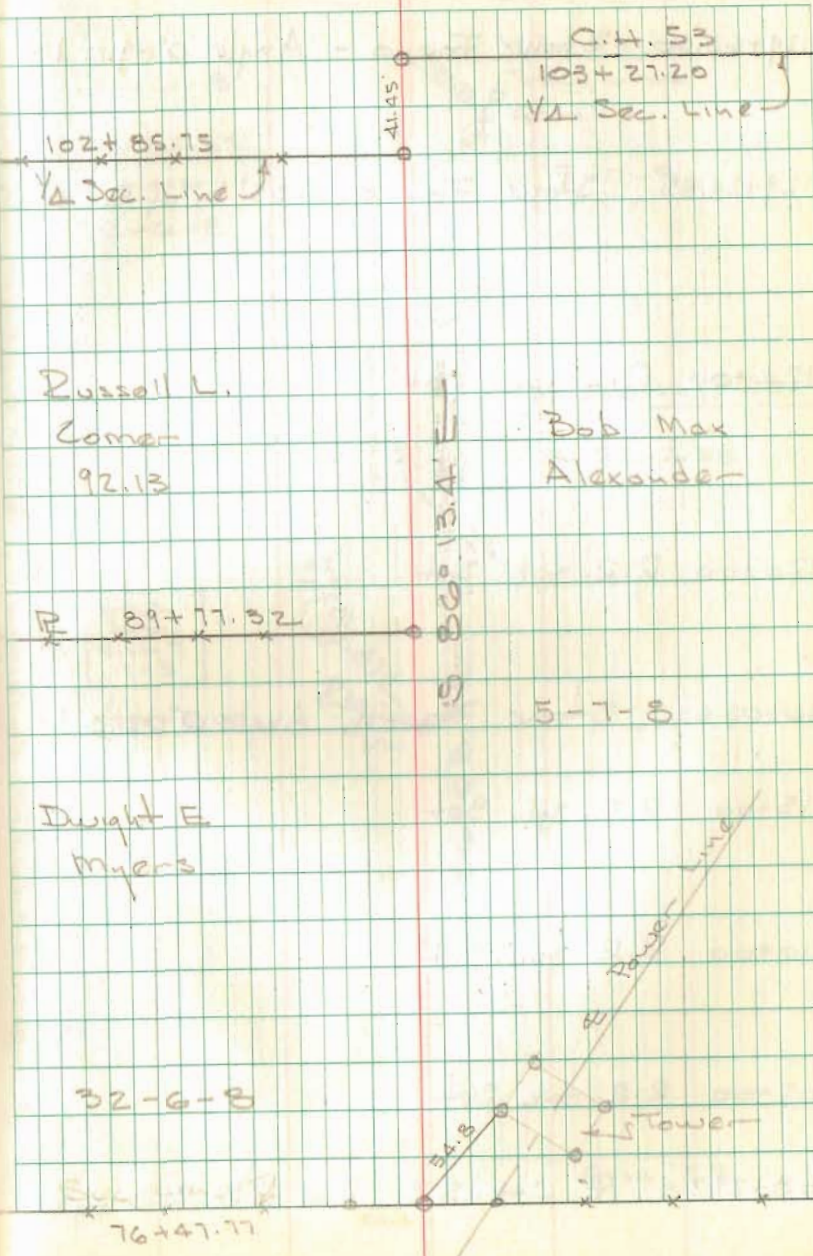 C.H. 53
103+27.20
1/4 Sec. Line
41.45
102+85.75
1/4 Sec. Line
Russell L.
Comer
92.13
Bob Max
Alexander
S 86° 13.4' E
PL 89+77.32
5-7-8
Dwight E
Myers
℄ Power Line
32-6-8
54.8
Tower
76+47.77